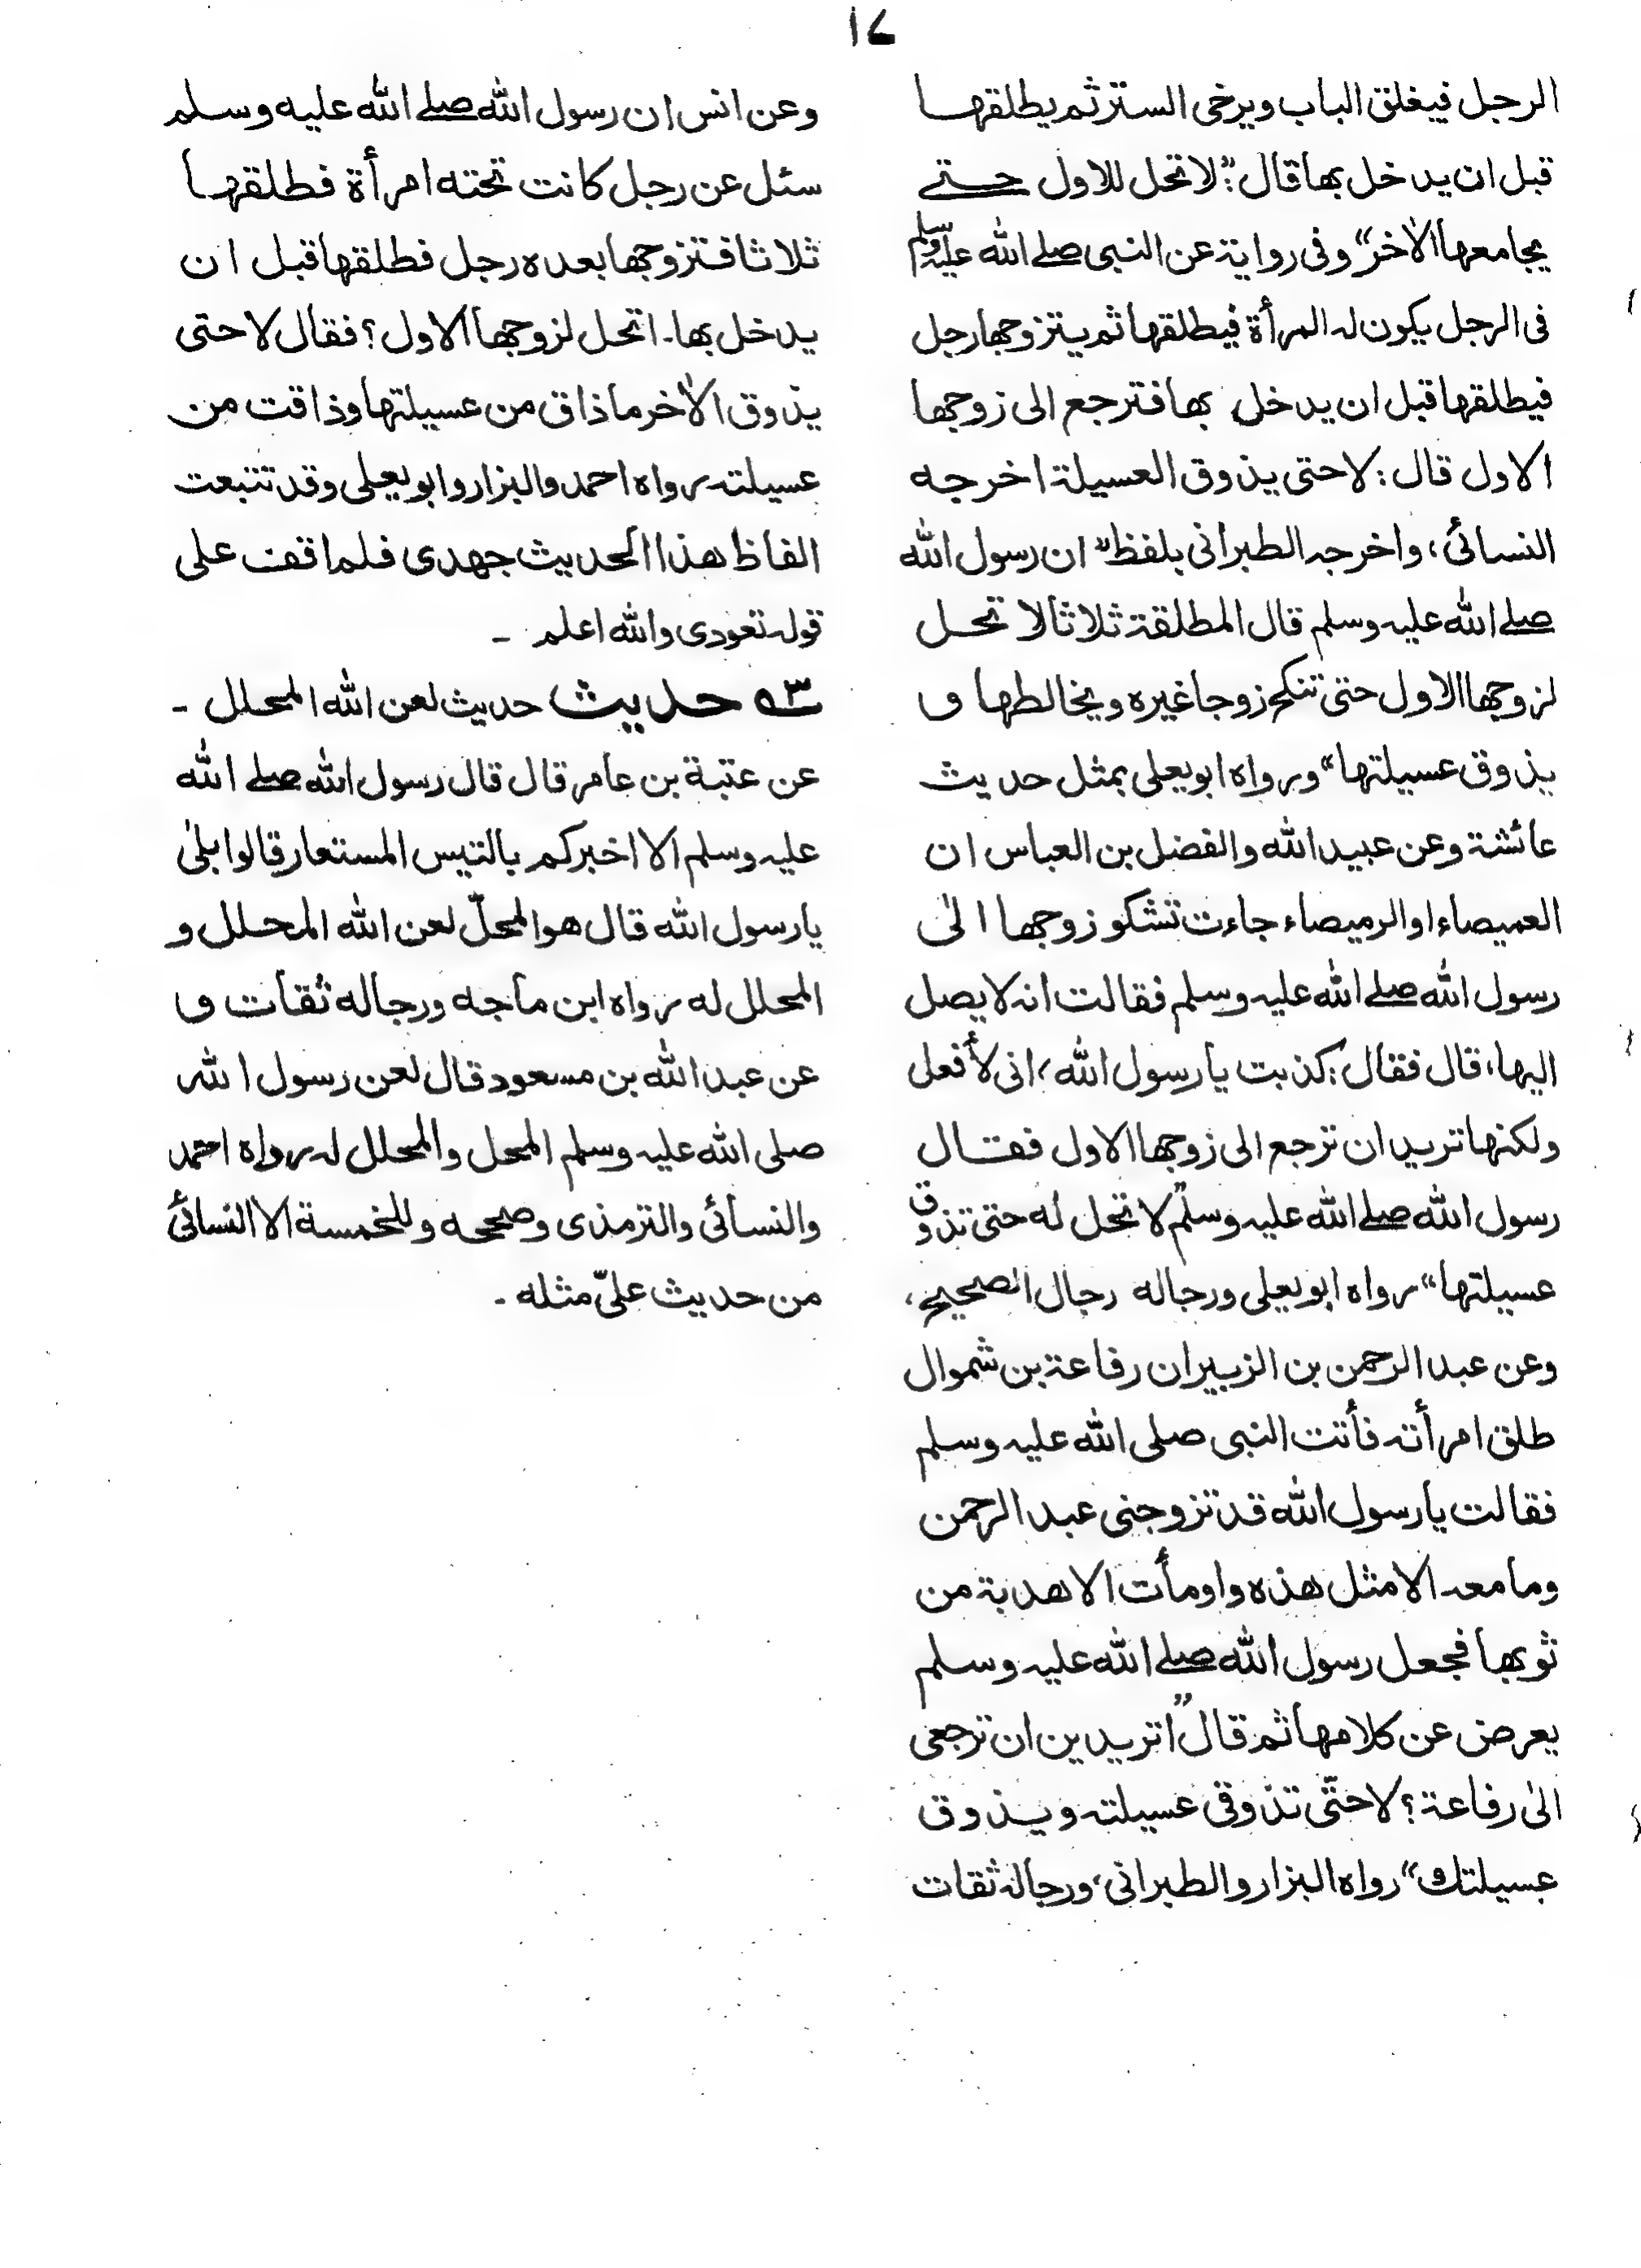 ١٤
الرجل فيغلق الباب ويرخى الستر ثم يطلقها
قبل ان يدخل بها قال: "لا تحل للاول حتے
يجامعها الاٰخر" وفى رواية عن النبى صلے الله عليه وسلم
فى الرجل يكون له المرأة فيطلقها ثم يتزوجها رجل
فيطلقها قبل ان يدخل بها فترجع الى زوجها
الاول قال: لا حتى يذوق العسيلة اخرجه
النسائى، واخرجه الطبرانى بلفظ "ان رسول الله
صلے الله عليه وسلم قال المطلقة ثلاثا لا تحل
لزوجها الاول حتى تنكح زوجا غيره ويخالطها و
يذوق عسيلتها" ورواه ابويعلى بمثل حديث
عائشة وعن عبيد الله والفضل بن العباس ان
العميصاء او الرميصاء جاءت تشكو زوجها الىٰ
رسول الله صلے الله عليه وسلم فقالت انه لا يصل
اليها، قال فقال: كذبت يا رسول الله، انى لأفعل
ولكنها تريد ان ترجع الى زوجها الاول فقال
رسول الله صلے الله عليه وسلم "لا تحل له حتى تذوق
عسيلتها" رواه ابويعلى ورجاله رجال الصحيح،
وعن عبد الرحمن بن الزبير ان رفاعة بن شموال
طلق امرأته فأتت النبى صلى الله عليه وسلم
فقالت يا رسول الله قد تزوجنى عبد الرحمن
وما معه الا مثل هذه واومأت الا هدبة من
ثوبها فجعل رسول الله صلے الله عليه وسلم
يعرض عن كلامها ثم قال "اتريدين ان ترجعى
الىٰ رفاعة؟ لا حتّى تذوقى عسيلته ويذوق
عسيلتك" رواه البزار والطبرانى، ورجاله ثقات
وعن انس ان رسول الله صلے الله عليه وسلم
سئل عن رجل كانت تحته امرأة فطلقها
ثلاثا فتزوجها بعده رجل فطلقها قبل ان
يدخل بها۔ اتحل لزوجها الاول؟ فقال لا حتى
يذوق الاٰخر ما ذاق من عسيلتها وذاقت من
عسيلته رواه احمد والبزار وابويعلى وقد تتبعت
الفاظ هذا الحديث جهدى فلم اقف على
قوله تعودى والله اعلم ۔
٥٣ حديث حديث لعن الله المحلل ۔
عن عتبة بن عامر قال قال رسول الله صلے الله
عليه وسلم الا اخبركم بالتيس المستعار قالوا بلىٰ
يا رسول الله قال هو المحلّ لعن الله المحلل و
المحلل له رواه ابن ماجه ورجاله ثقات و
عن عبد الله بن مسعود قال لعن رسول الله
صلى الله عليه وسلم المحل والمحلل له رواه احمد
والنسائى والترمذى وصححه وللخمسة الا النسائى
من حديث علىّ مثله ۔